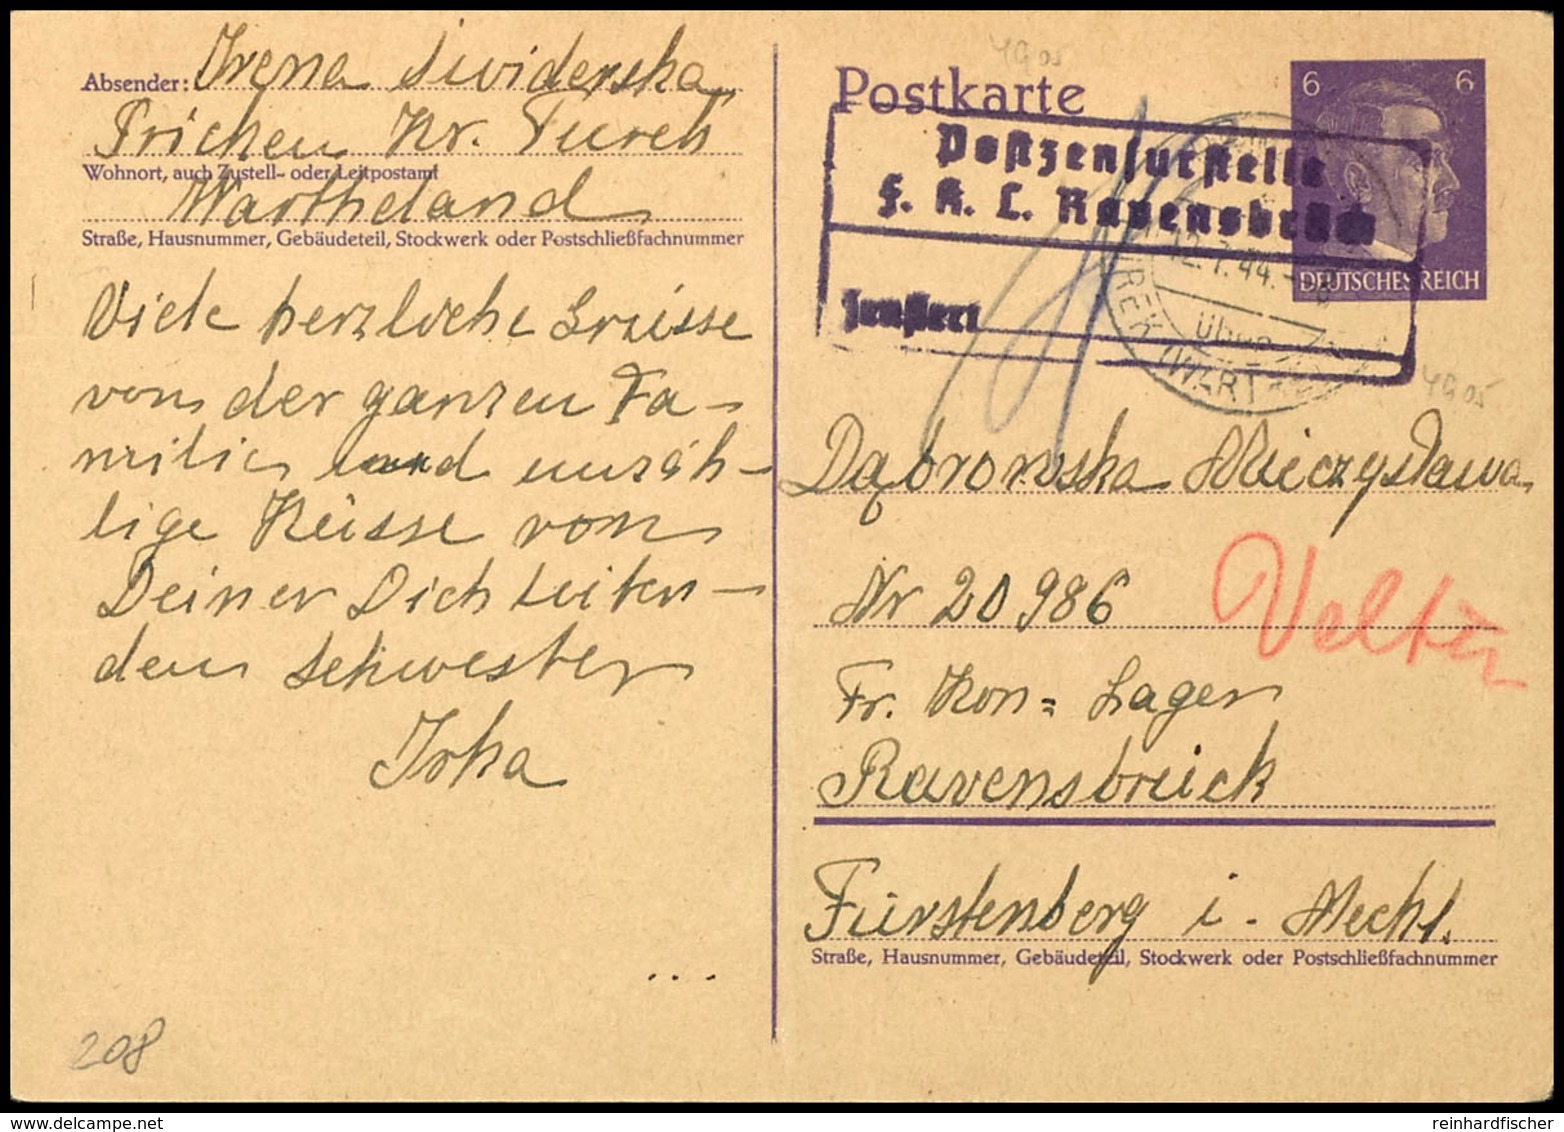 Absender: Irena Swiderska
Prichen Kr. Turek
Wohnort, auch Zustell- oder Leitpostamt
Wartheland
Straße, Hausnummer, Gebäudeteil, Stockwerk oder Postschließfachnummer
Viele herzliche Grüsse
von der ganzen Fa-
milie und unzäh-
lige Küsse von
Deiner Dich liebenden
Schwester
Irka
...
208
Postkarte
6 6
DEUTSCHES REICH
Postzensurstelle
F. K. L. Ravensbrück
Zensiert
12.7.44.
über
TUREK (WARTHEL)
Dąbrowska Mieczysława
Nr 20986
Velten
Fr. Kon = Lager
Ravensbrück
Fürstenberg i. Meckl.
Straße, Hausnummer, Gebäudeteil, Stockwerk oder Postschließfachnummer
reinhardfischer